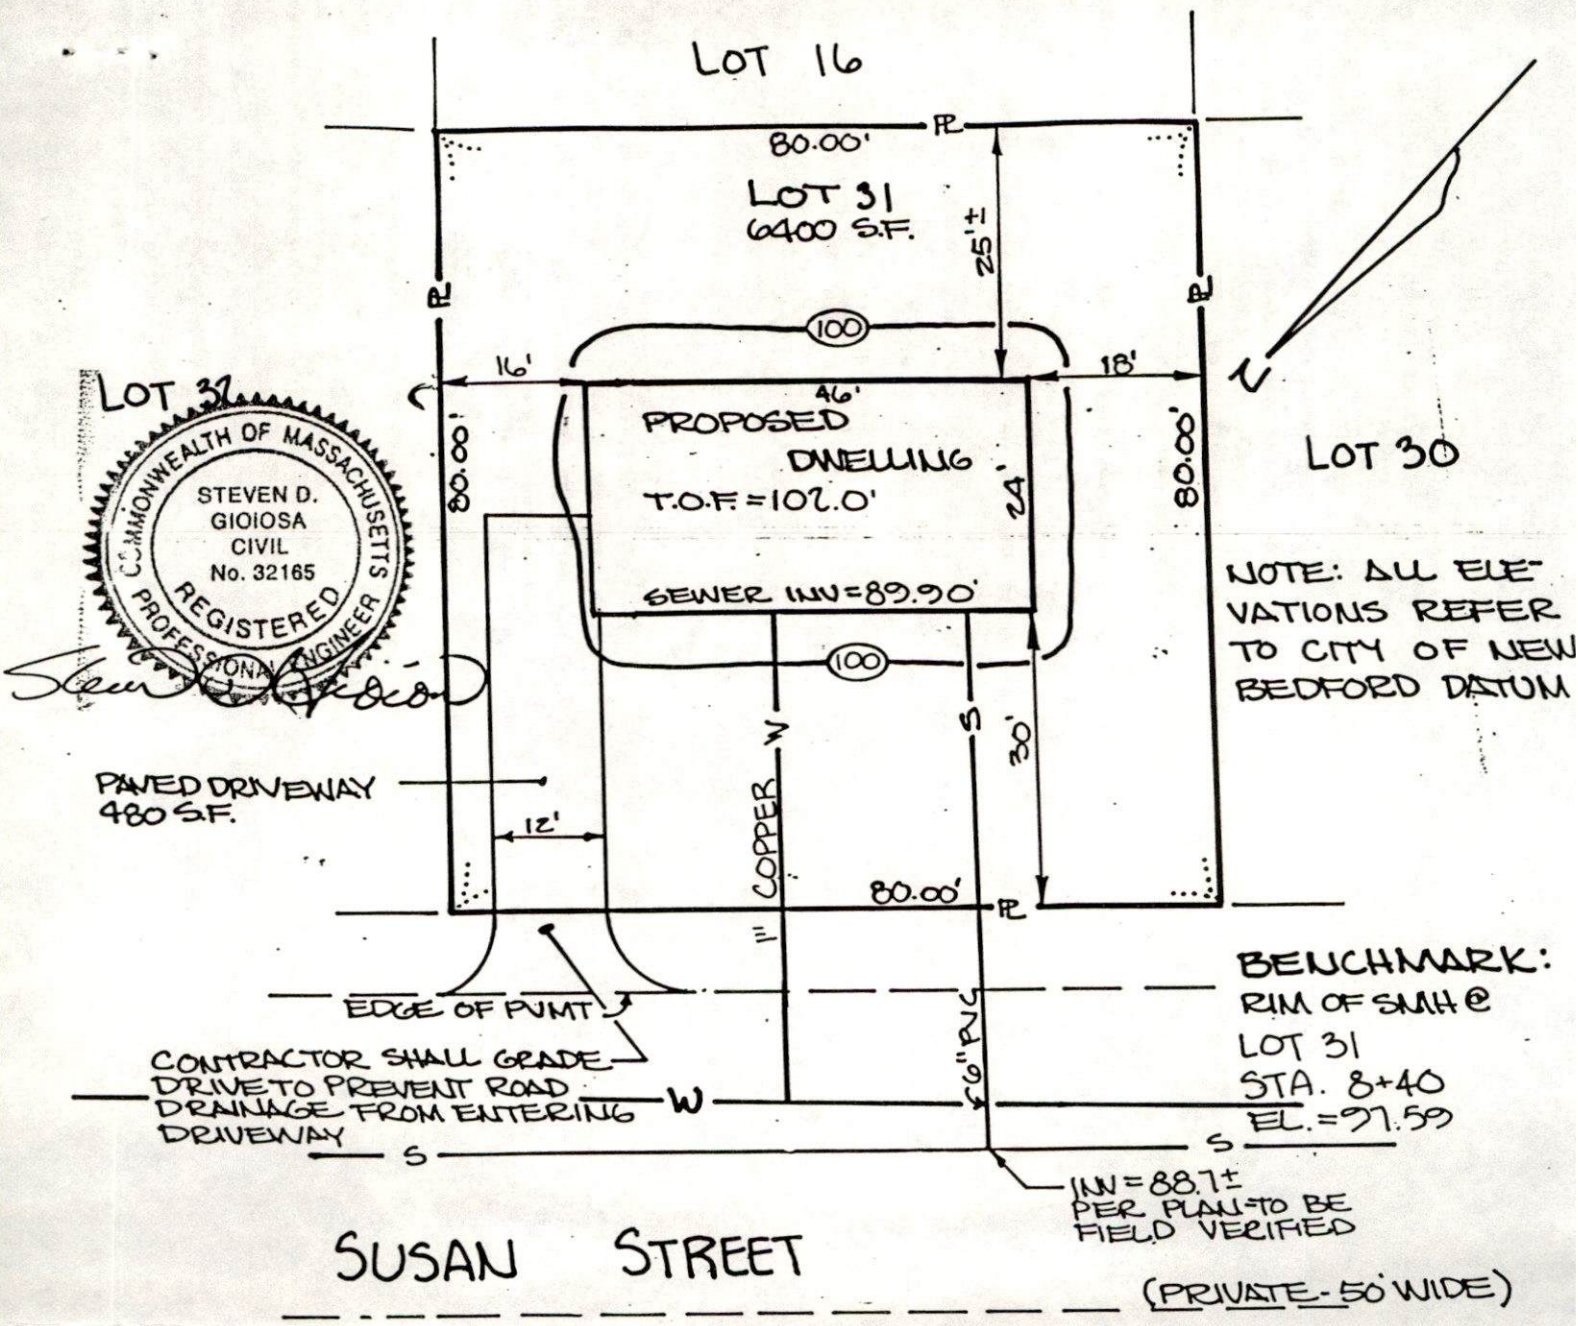 LOT 16
80.00'
PL
LOT 31
6400 S.F.
25'±
PL
PL
100
16'
46'
18'
N
LOT 32
COMMONWEALTH OF MASSACHUSETTS
STEVEN D.
GIOIOSA
CIVIL
No. 32165
REGISTERED
PROFESSIONAL ENGINEER
80.00'
PROPOSED
DWELLING
T.O.F. = 102.0'
24'
SEWER INV = 89.90'
80.00'
LOT 30
NOTE: ALL ELE-
VATIONS REFER
TO CITY OF NEW
BEDFORD DATUM
100
W
S
30'
PAVED DRIVEWAY
480 S.F.
12'
1" COPPER
80.00'
PL
6" PVC
EDGE OF PVMT
CONTRACTOR SHALL GRADE
DRIVE TO PREVENT ROAD
DRAINAGE FROM ENTERING
DRIVEWAY
W
S
S
BENCHMARK:
RIM OF SMH @
LOT 31
STA. 8+40
EL. = 97.59
INV = 88.7±
PER PLAN-TO BE
FIELD VERIFIED
SUSAN STREET
(PRIVATE - 50' WIDE)